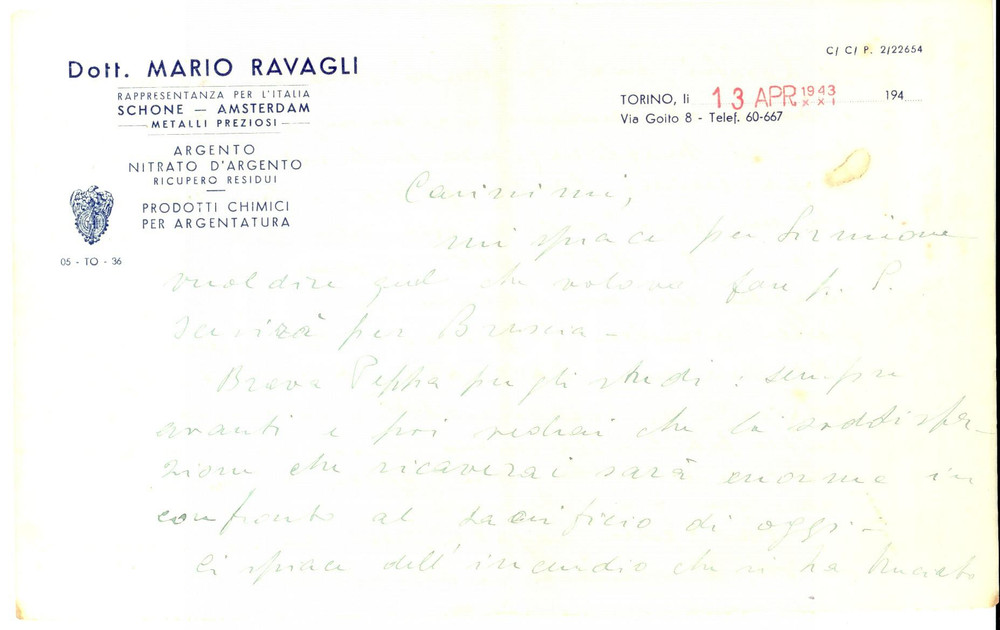 C/ C/ P. 2/22654
Dott. MARIO RAVAGLI
RAPPRESENTANZA PER L'ITALIA
SCHONE — AMSTERDAM
METALLI PREZIOSI
ARGENTO
NITRATO D'ARGENTO
RICUPERO RESIDUI
PRODOTTI CHIMICI
PER ARGENTATURA
05 - TO - 36
TORINO, li 13 APR 1943 XXI 194
Via Goito 8 - Telef. 60-667
Carissimi,
mi spiace per Sirmione
vuol dire che
per Brescia -
Brava Peppa per gli studi: sempre
avanti e poi vedrai che la soddisfa-
zione che ricaverai sarà enorme in
confronto al sacrificio di oggi -
Ci spiace dell'incendio che vi ha bruciato